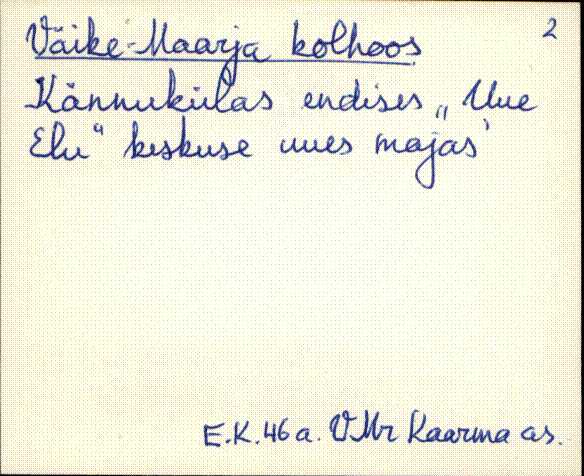 2
Väike-Maarja kolhoos
Kännukülas endises „Uue
Elu“ keskuse uues majas
E.K. 46 a. VMr Kaarma as.